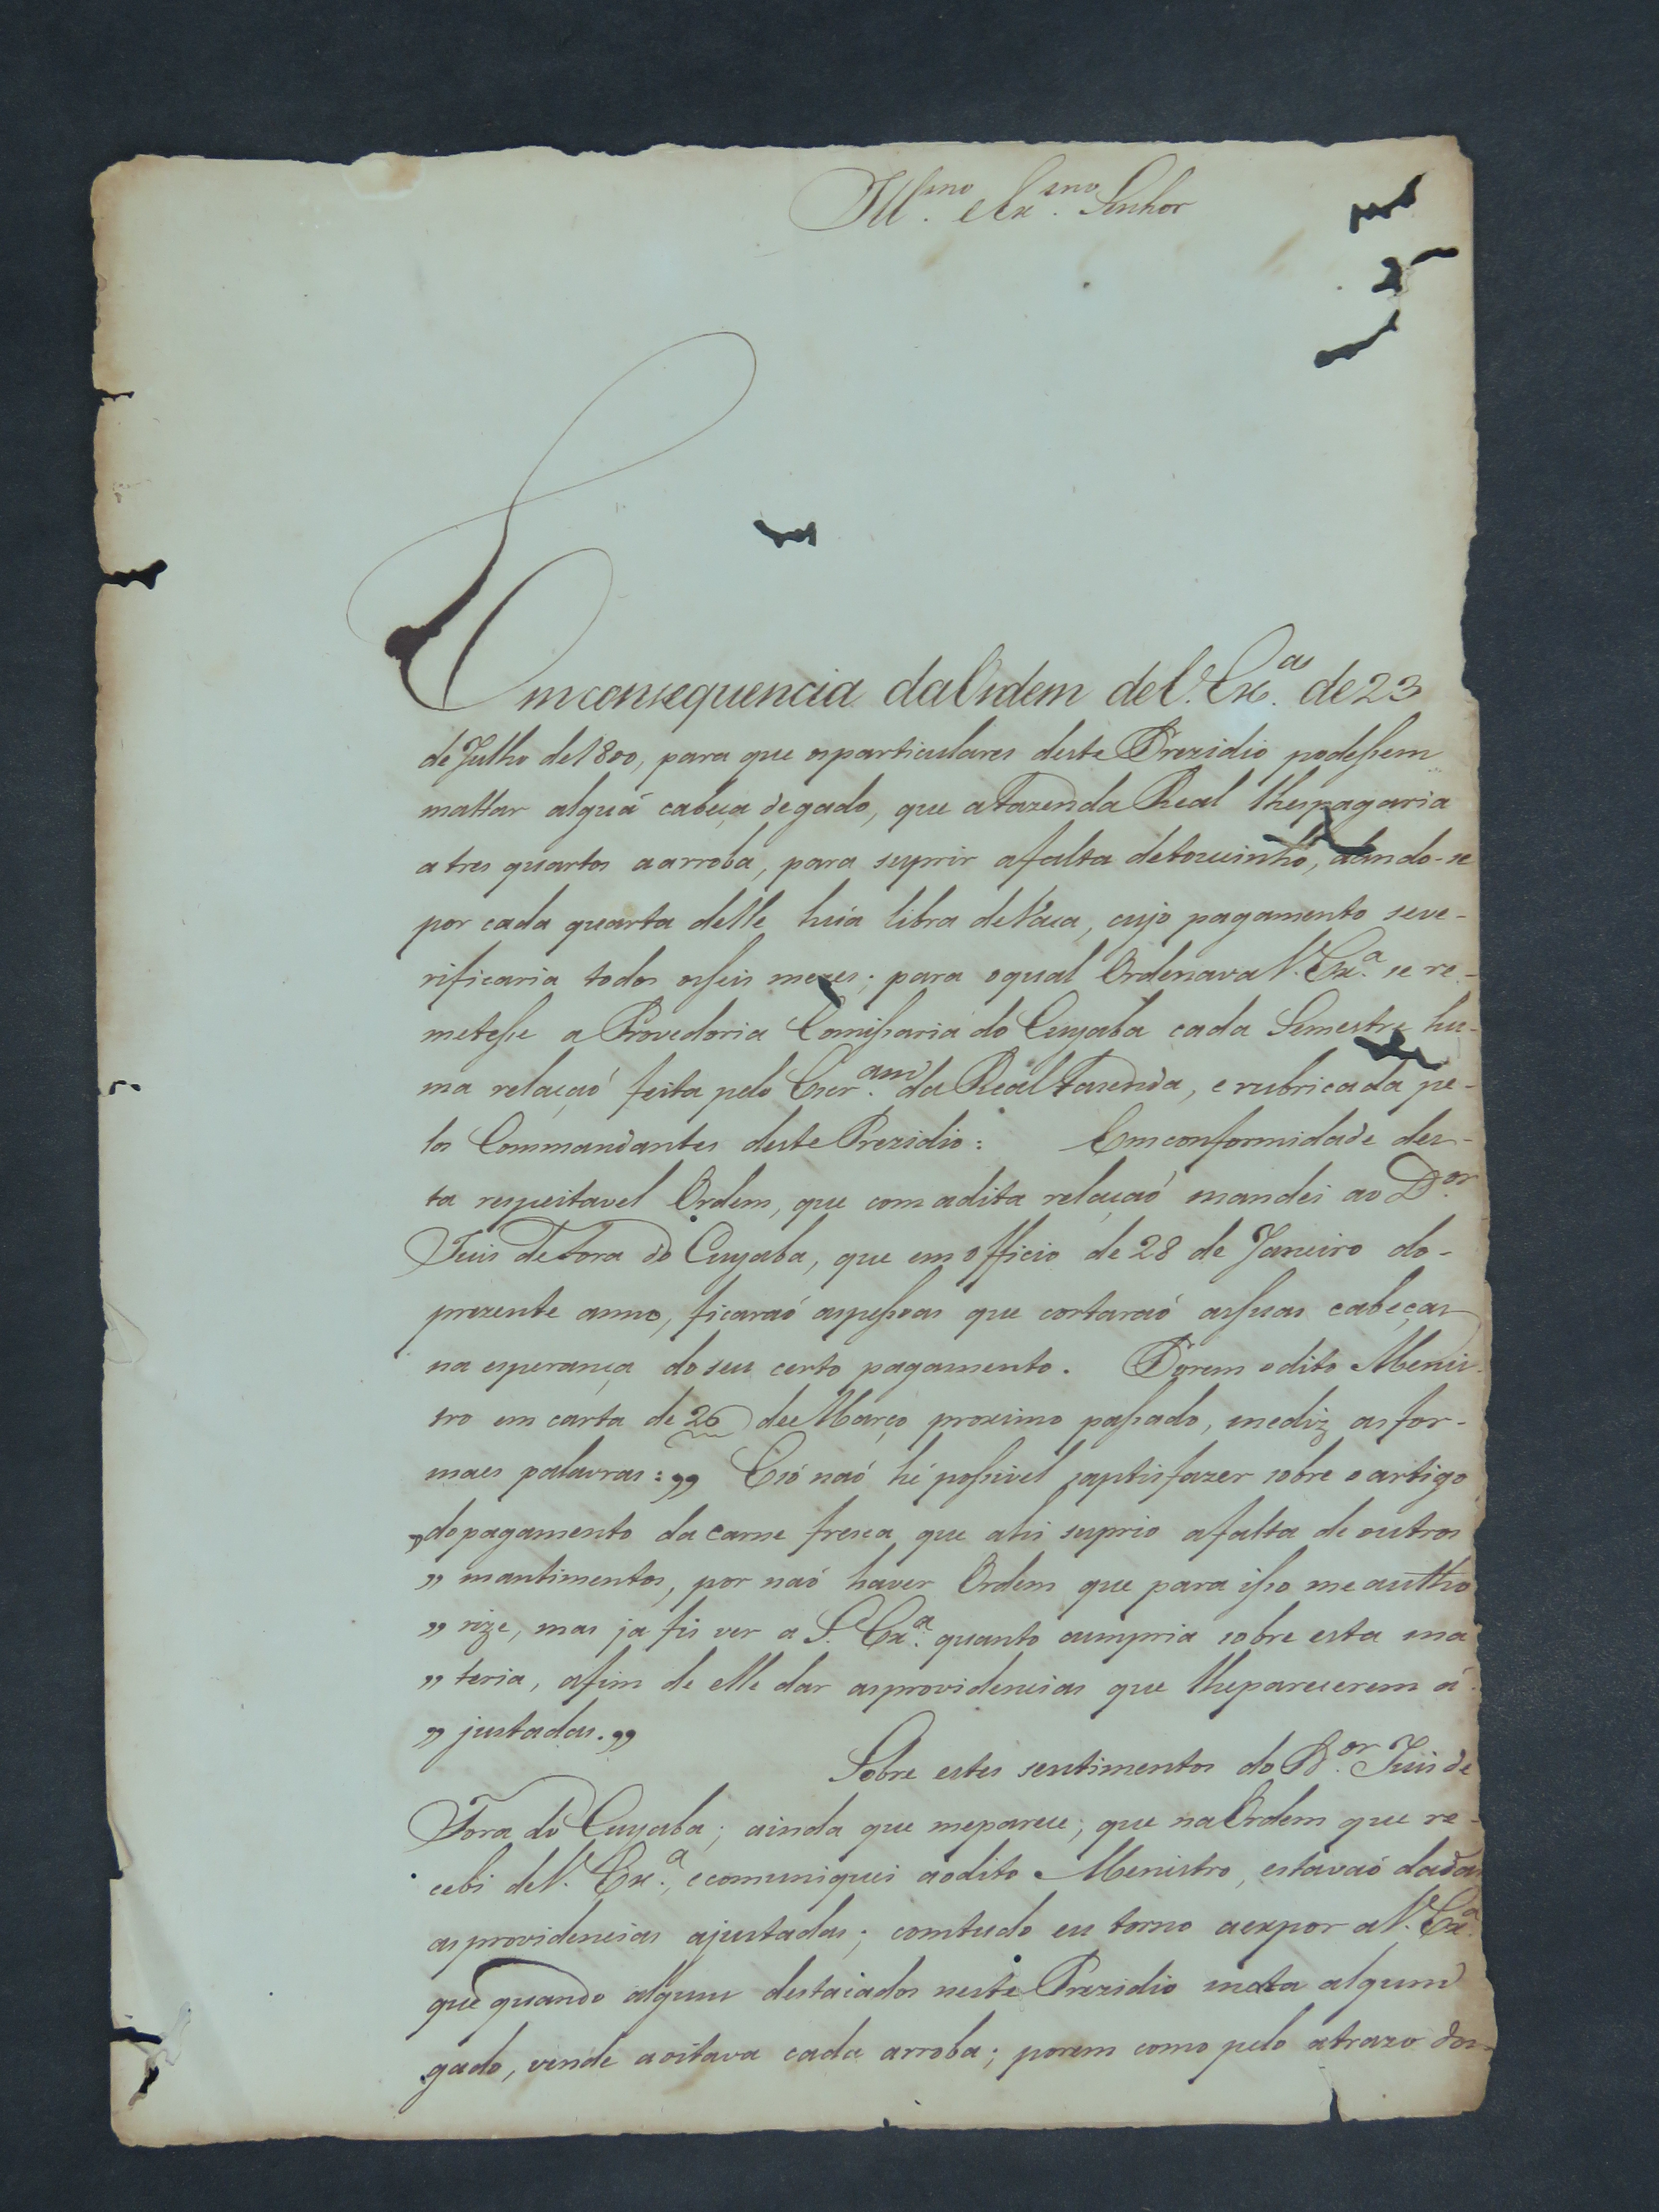 Ill.mo e Ex.mo Senhor
Em consequencia da Ordem de V. Ex.as de 23
de Julho de 1800, para que os particulares deste Prezidio podessem
mattar alguã cabeça de gado, que a Fazenda Real lhes pagaria
a tres quartos a arroba, para suprir a falta de toucinho, dando-se
por cada quarta delle huã libra de Vaca, cujo pagamento se ve-
rificaria todos os seis mezes; para o qual Ordenava V. Ex.a se re-
metesse a Provedoria Comissaria do Cuyaba cada Semestre hu-
ma relaçaõ feita pelo Escr.am da Real Fazenda, e rubricada pe-
los Commandantes deste Prezidio: Em conformidade des-
ta respeitavel Ordem, que com a dita relaçaõ mandei ao D.or
Juis de Fora do Cuyaba, que em officio de 28 de Janeiro do
prezente anno, ficaraõ as pessoas que cortaraõ as suas cabeças
na esperança do seu certo pagamento. Porem o dito Menis-
tro em carta de 26 de Março proximo passado, me diz as for-
maes palavras: „ Eso naõ hé possivel saptisfazer sobre o artigo
„ do pagamento da carne fresca que ahi suprio a falta de outros
„ mantimentos, por naõ haver Ordem que para isso me autho
„ rize, mas ja fis ver a S. Ex.a quanto cumpria sobre esta ma
„ teria, afim de elle dar as providencias que lhe parecerem a
„ justadas. „
Sobre estes sentimentos do D.or Juis de
Fora do Cuyaba; ainda que me parece, que na Ordem que re-
cebi de V. Ex.a, e comuniquei ao dito Menistro, estavaõ dadas
as providencias ajustadas; comtudo eu torno a expor a V. Ex.a
que quando alguns destacados neste Prezidio mata algum
gado, vende a oitava cada arroba; porem como pelo atrazo dos